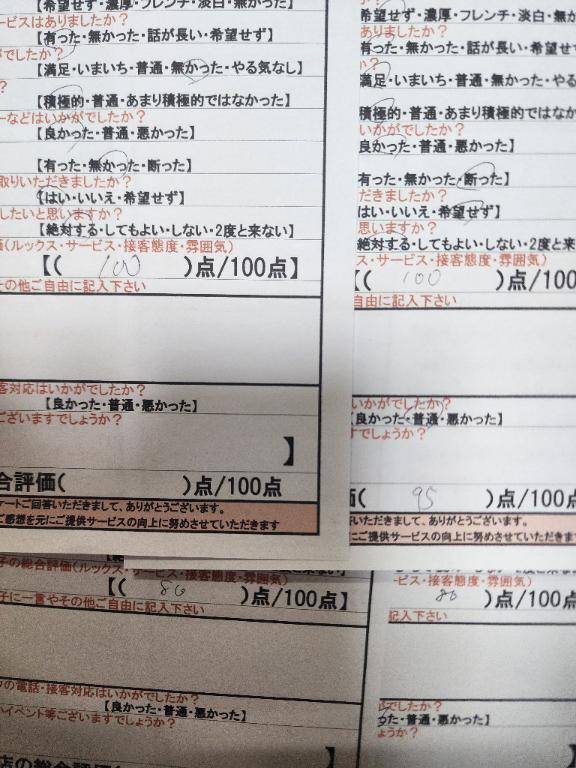 【希望せず・濃厚・フレンチ・淡白・無かった】
ービスはありましたか？
【有った・無かった・話が長い・希望せず】
でしたか？
【満足・いまいち・普通・無かった・やる気なし】
？
【積極的・普通・あまり積極的ではなかった】
ーなどはいかがでしたか？
【良かった・普通・悪かった】
【有った・無かった・断った】
取りいただきましたか？
【はい・いいえ・希望せず】
したいと思いますか？
【絶対する・してもよい・しない・2度と来ない】
価(ルックス・サービス・接客態度・雰囲気)
【( 100 )点/100点】
その他ご自由に記入下さい
客対応はいかがでしたか？
【良かった・普通・悪かった】
ございますでしょうか？
】
合評価( )点/100点
ケートご回答いただきまして、ありがとうございます。
ご感想を元にご提供サービスの向上に努めさせていただきます
希望せず・濃厚・フレンチ・淡白・無
ありましたか？
有った・無かった・話が長い・希望せ
か？
満足・いまいち・普通・無かった・や
積極的・普通・あまり積極的ではなか
いかがでしたか？
良かった・普通・悪かった】
有った・無かった・断った】
だきましたか？
はい・いいえ・希望せず】
思いますか？
絶対する・してもよい・しない・2度と来
ス・サービス・接客態度・雰囲気)
【( 100 )点/100
自由に記入下さい
いかがでしたか？
良かった・普通・悪かった】
でしょうか？
価( 95 )点/100点
いただきまして、ありがとうございます。
にご提供サービスの向上に努めさせていただきます
子の総合評価(ルックス・サービス・接客態度・雰囲気)
【( 80 )点/100点】
子に一言やその他ご自由に記入下さい
の電話・接客対応はいかがでしたか？
【良かった・普通・悪かった】
イベント等ございますでしょうか？
】
店の総合評価(
ービス・接客態度・雰囲気)
80 )点/100点
記入下さい
でしたか？
った・普通・悪かった】
ょうか？
】